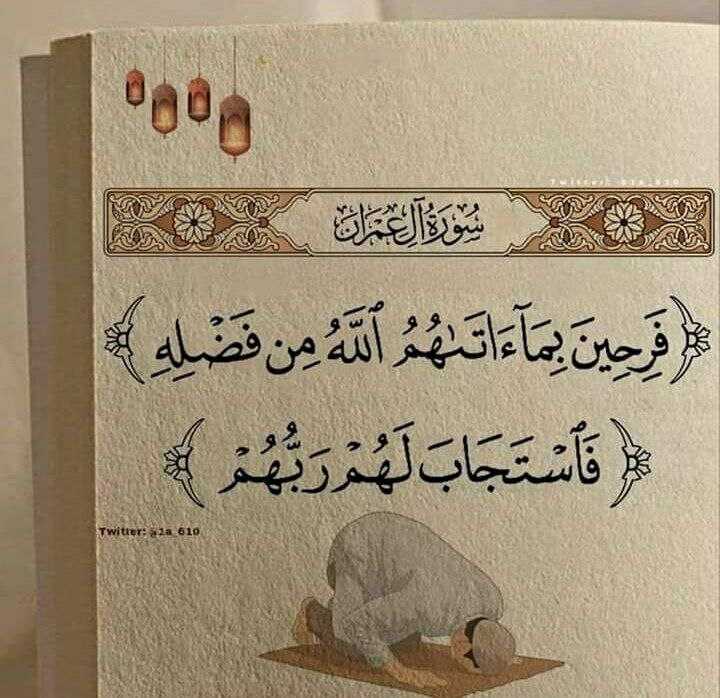 سُورَةُ آلِ عِمْرَان
﴿ فَرِحِينَ بِمَآ ءَاتَىٰهُمُ ٱللَّهُ مِن فَضْلِهِ ﴾
﴿ فَٱسْتَجَابَ لَهُمْ رَبُّهُمْ ﴾
Twitter: @2a_610